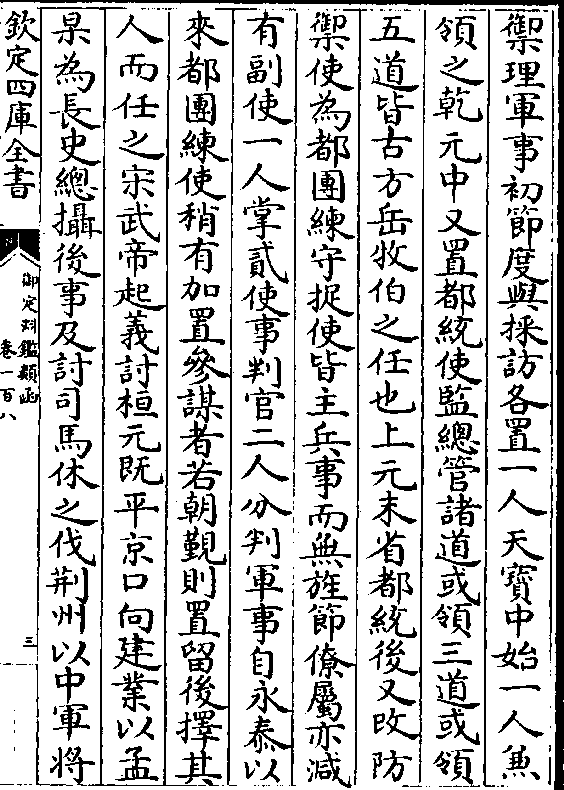 禦理軍事初節度與採訪各置一人天寶中始一人兼
領之乾元中又置都統使監總管諸道或領三道或領
五道皆古方岳牧伯之任也上元末省都統後又改防
禦使為都團練守捉使皆主兵事而無旌節僚屬亦減
有副使一人掌貳使事判官二人分判軍事自永泰以
來都團練使稍有加置參謀者若朝覲則置留後擇其
人而任之宋武帝起義討桓元既平京口向建業以孟
杲為長史總攝後事及討司馬休之伐荆州以中軍將
欽定四庫全書
御定淵鑑類函
卷一百八
三